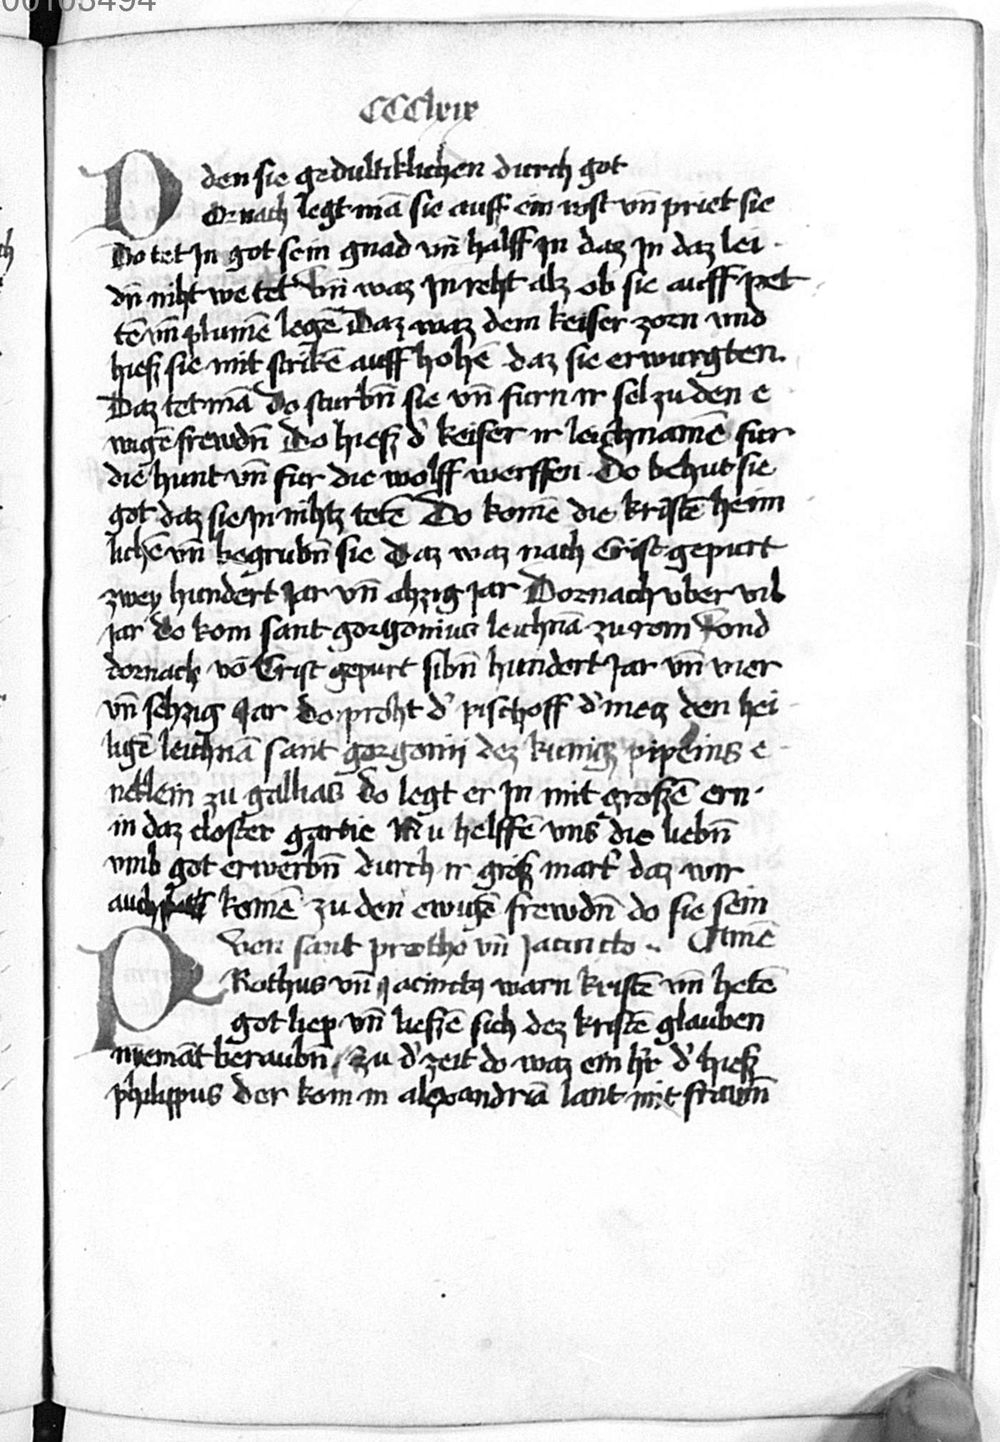 00103494
CCClxix
den sie gedultiklichen durch got
Dornach legt mā sie auff ein rost vn̄ priet sie
Do tet Jn got sein gnad vn̄ halff Jn daz Jn daz lei
dn̄ niht we tet Vn̄ waz Jn reht alz ob sie auff pet
tē vn̄ plumē legē Daz waz dem keiser zorn vnd
hieß sie mit strikē auff hohē daz sie erwurgten.
Daz tet mā Do sturbn̄ sie vn̄ furn ir sel zu den e
wigē frewdn̄ Do hieß d' keiser ir leichnamē fur
die hunt vn̄ fur die wolff werffen Do behut sie
got daz sie Jn nihtz tetē Do komē die kristē heim
lichē vn̄ begrubn̄ sie Daz waz nach Crist gepurt
zwey hundert Jar vn̄ ahzig Jar Dornach vber vil
Jar do kom sant gorgonius leichnā zu rom Vond
dornach vō Crist gepurt sibn̄ hundert Jar vn̄ vier
vn̄ sehzig Jar do praht d' pischoff d' metz den hei
ligē leichnā sant gorgonij dez kunigz pipeins e
neklein zu gallias do legt er Jn mit großē ern
in daz closter gartie Nu helffē vns die liebn̄
vmb got erwerbn̄ durch ir groß mart' daz wir
auch komē zu den ewigē frewdn̄ do sie sein
Von sant protho vn̄ Jacincto Amē
PRothus vn̄ Jacinctus warn kristē vn̄ hetē
got liep vn̄ ließē sich dez kristē glauben
niemāt beraubn̄ Zu d' zeit do waz ein h'r d' hieß
philippus der kom in alexandriā lant mit frawn̄